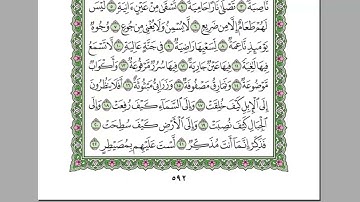 نَّاصِبَةٌ ٣ تَصْلَىٰ نَارًا حَامِيَةً ٤ تُسْقَىٰ مِنْ عَيْنٍ ءَانِيَةٍ ٥ لَّيْسَ
لَهُمْ طَعَامٌ إِلَّا مِن ضَرِيعٍ ٦ لَّا يُسْمِنُ وَلَا يُغْنِي مِن جُوعٍ ٧ وُجُوهٌ
يَوْمَئِذٍ نَّاعِمَةٌ ٨ لِّسَعْيِهَا رَاضِيَةٌ ٩ فِي جَنَّةٍ عَالِيَةٍ ١٠ لَّا تَسْمَعُ
فِيهَا لَٰغِيَةً ١١ فِيهَا عَيْنٌ جَارِيَةٌ ١٢ فِيهَا سُرُرٌ مَّرْفُوعَةٌ ١٣ وَأَكْوَابٌ
مَّوْضُوعَةٌ ١٤ وَنَمَارِقُ مَصْفُوفَةٌ ١٥ وَزَرَابِيُّ مَبْثُوثَةٌ ١٦ أَفَلَا يَنظُرُونَ
إِلَى الْإِبِلِ كَيْفَ خُلِقَتْ ١٧ وَإِلَى السَّمَاءِ كَيْفَ رُفِعَتْ ١٨ وَإِلَى
الْجِبَالِ كَيْفَ نُصِبَتْ ١٩ وَإِلَى الْأَرْضِ كَيْفَ سُطِحَتْ ٢٠
فَذَكِّرْ إِنَّمَا أَنتَ مُذَكِّرٌ ٢١ لَّسْتَ عَلَيْهِم بِمُصَيْطِرٍ ٢٢
٥٩٢